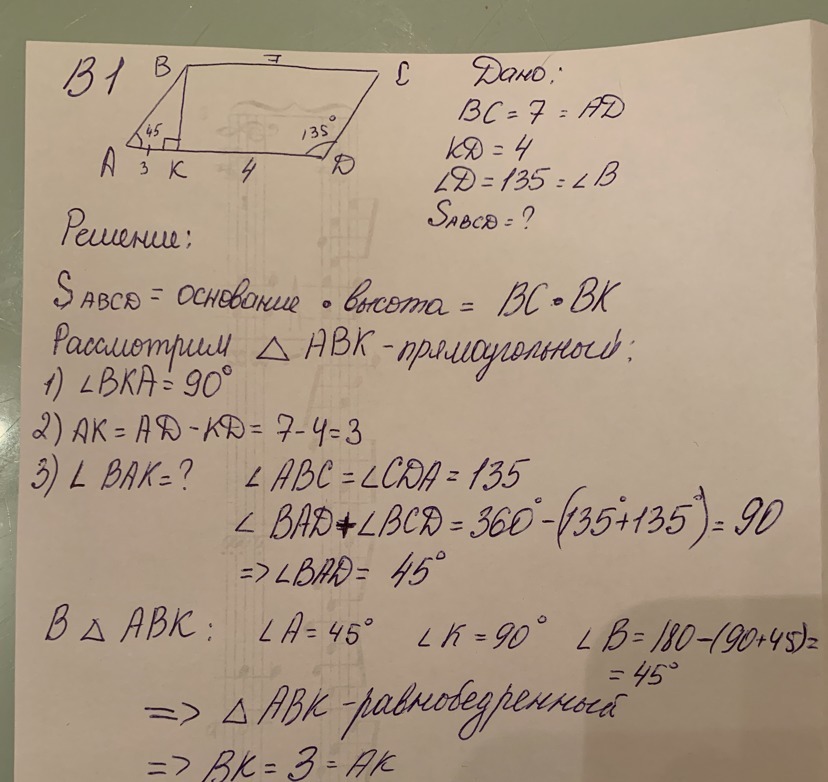 В1
B 7 C
45
135°
A 3 K 4 D
Дано:
BC = 7 = AD
KD = 4
∠D = 135 = ∠B
S ABCD = ?
Решение:
S ABCD = основание • высота = BC • BK
Рассмотрим △ ABK - прямоугольный:
1) ∠BKA = 90°
2) AK = AD - KD = 7 - 4 = 3
3) ∠ BAK = ? ∠ ABC = ∠CDA = 135
∠ BAD + ∠BCD = 360° - (135° + 135°) = 90
=> ∠BAD = 45°
В △ ABK: ∠A = 45° ∠K = 90° ∠B = 180 - (90 + 45) =
= 45°
=> △ ABK - равнобедренный
=> BK = 3 = AK